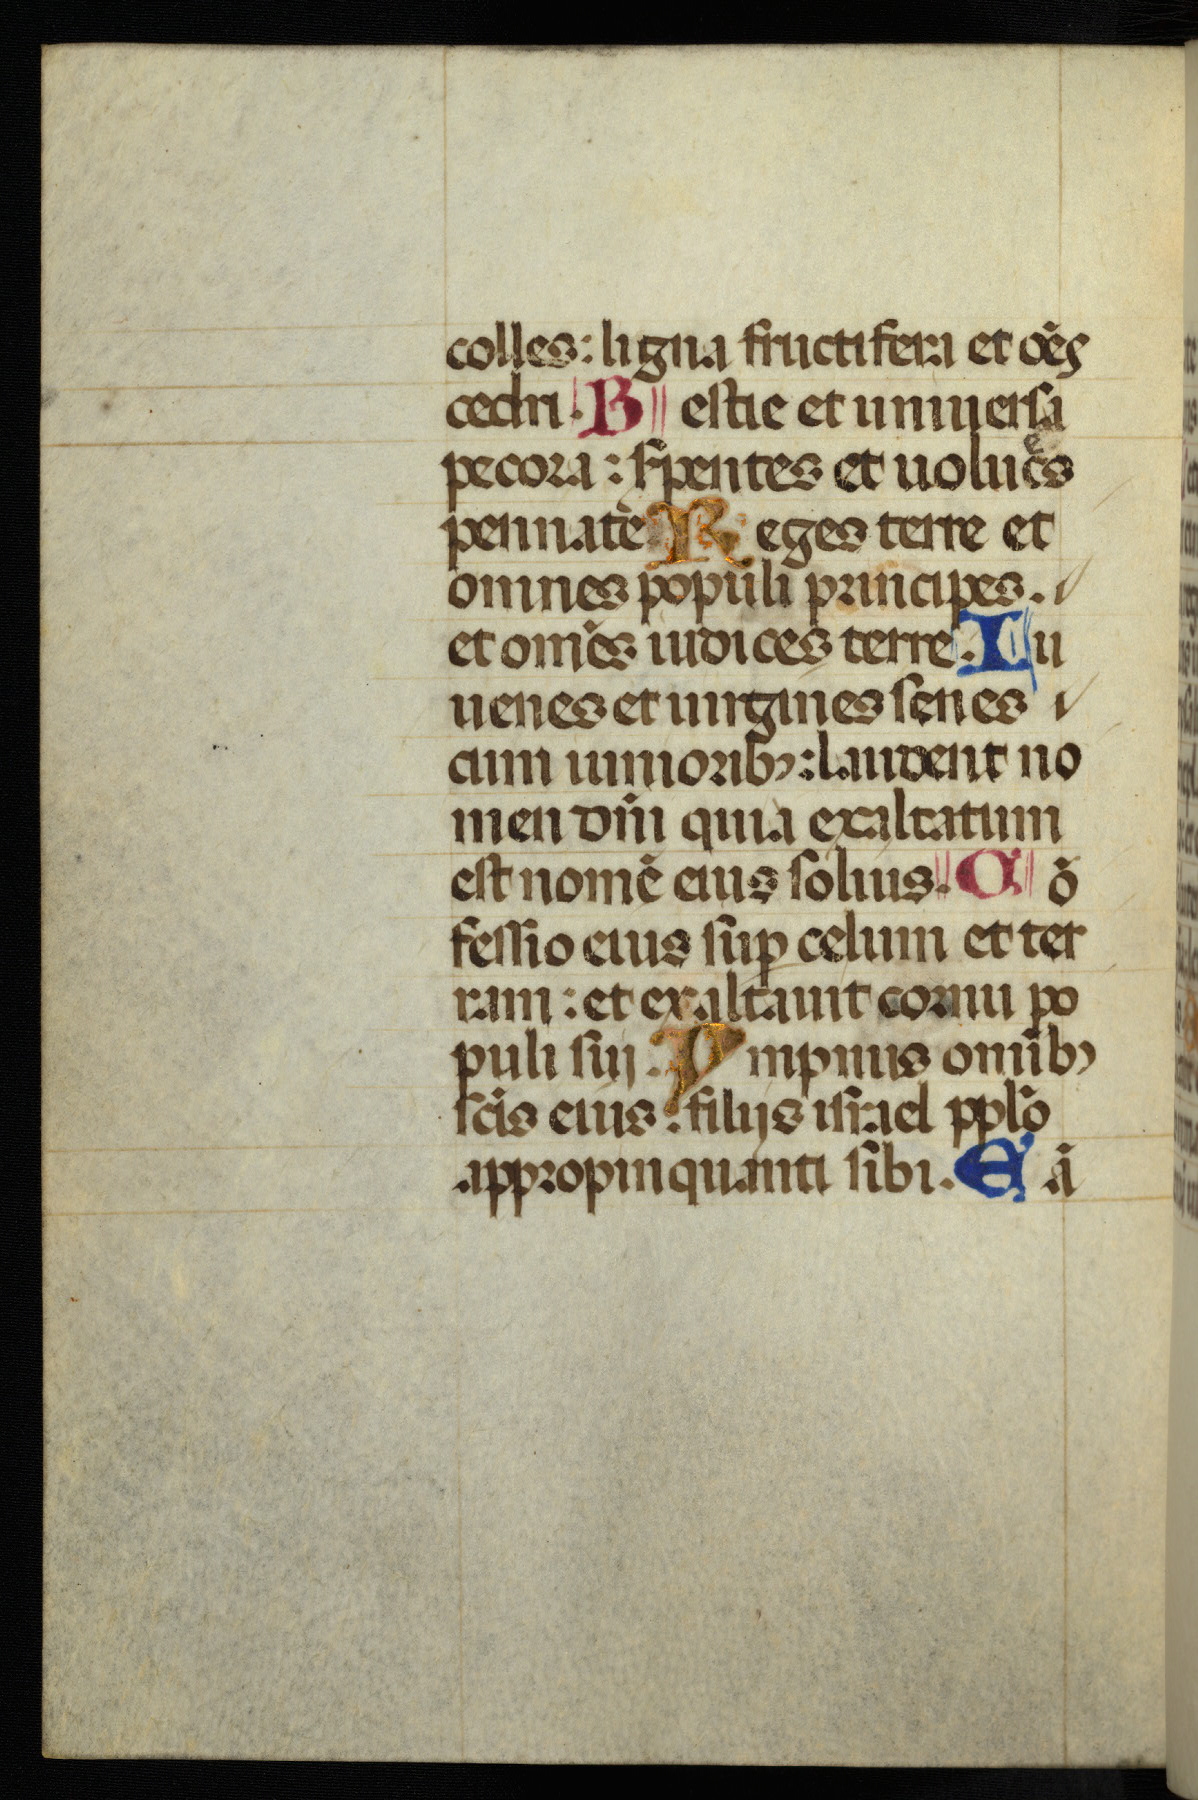 colles: ligna fructifera et oẽs
cedri. Bestie et uniuersa
pecora: s̃pentes et uolucͤs
pennate Reges terre et
omnes populi principes.
et om̃es iudices terre. Iu
uenes et uirgines senes
cum iunioribꝫ: laudent no
men dñi quia exaltatum
est nomẽ eius solius. Cõ
fessio eius suꝑ celum et ter
ram: et exaltauit cornu po
puli sui. Ympnus omĩbꝫ
sc̃is eius: filijs israel ppl̃o
appropinquanti sibi. Cã